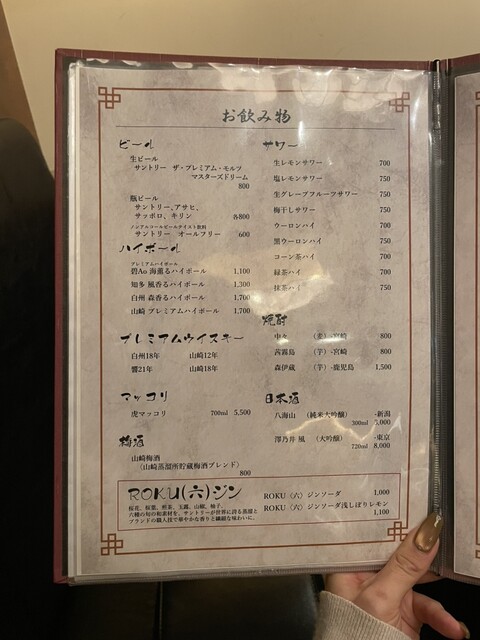 お飲み物
ビール
生ビール
サントリー ザ・プレミアム・モルツ
マスターズドリーム
800
瓶ビール
サントリー、アサヒ、
サッポロ、キリン 各800
ノンアルコールビールテイスト飲料
サントリー オールフリー 600
ハイボール
プレミアムハイボール
碧Ao 海薫るハイボール 1,100
知多 風香るハイボール 1,300
白州 森香るハイボール 1,700
山崎 プレミアムハイボール 1,700
プレミアムウイスキー
白州18年 山崎12年
響21年 山崎18年
マッコリ
虎マッコリ 700ml 5,500
梅酒
山崎梅酒
(山崎蒸留所貯蔵梅酒ブレンド)
800
サワー
生レモンサワー 700
塩レモンサワー 750
生グレープフルーツサワー 750
梅干しサワー 750
ウーロンハイ 700
黒ウーロンハイ 750
コーン茶ハイ 700
緑茶ハイ 700
抹茶ハイ 750
焼酎
中々 (麦) -宮崎 800
茜霧島 (芋) -宮崎 800
森伊蔵 (芋) -鹿児島 1,500
日本酒
八海山 (純米大吟醸) -新潟
300ml 5,000
澤乃井 凰 (大吟醸) -東京
720ml 8,000
ROKU(六)ジン
桜花、桜葉、煎茶、玉露、山椒、柚子。
六種の旬の和素材を、サントリーが世界に誇る蒸留と
ブレンドの職人技で華やかな香りと繊細な味わいに。
ROKU〈六〉ジンソーダ 1,000
ROKU〈六〉ジンソーダ浅しぼりレモン
1,100